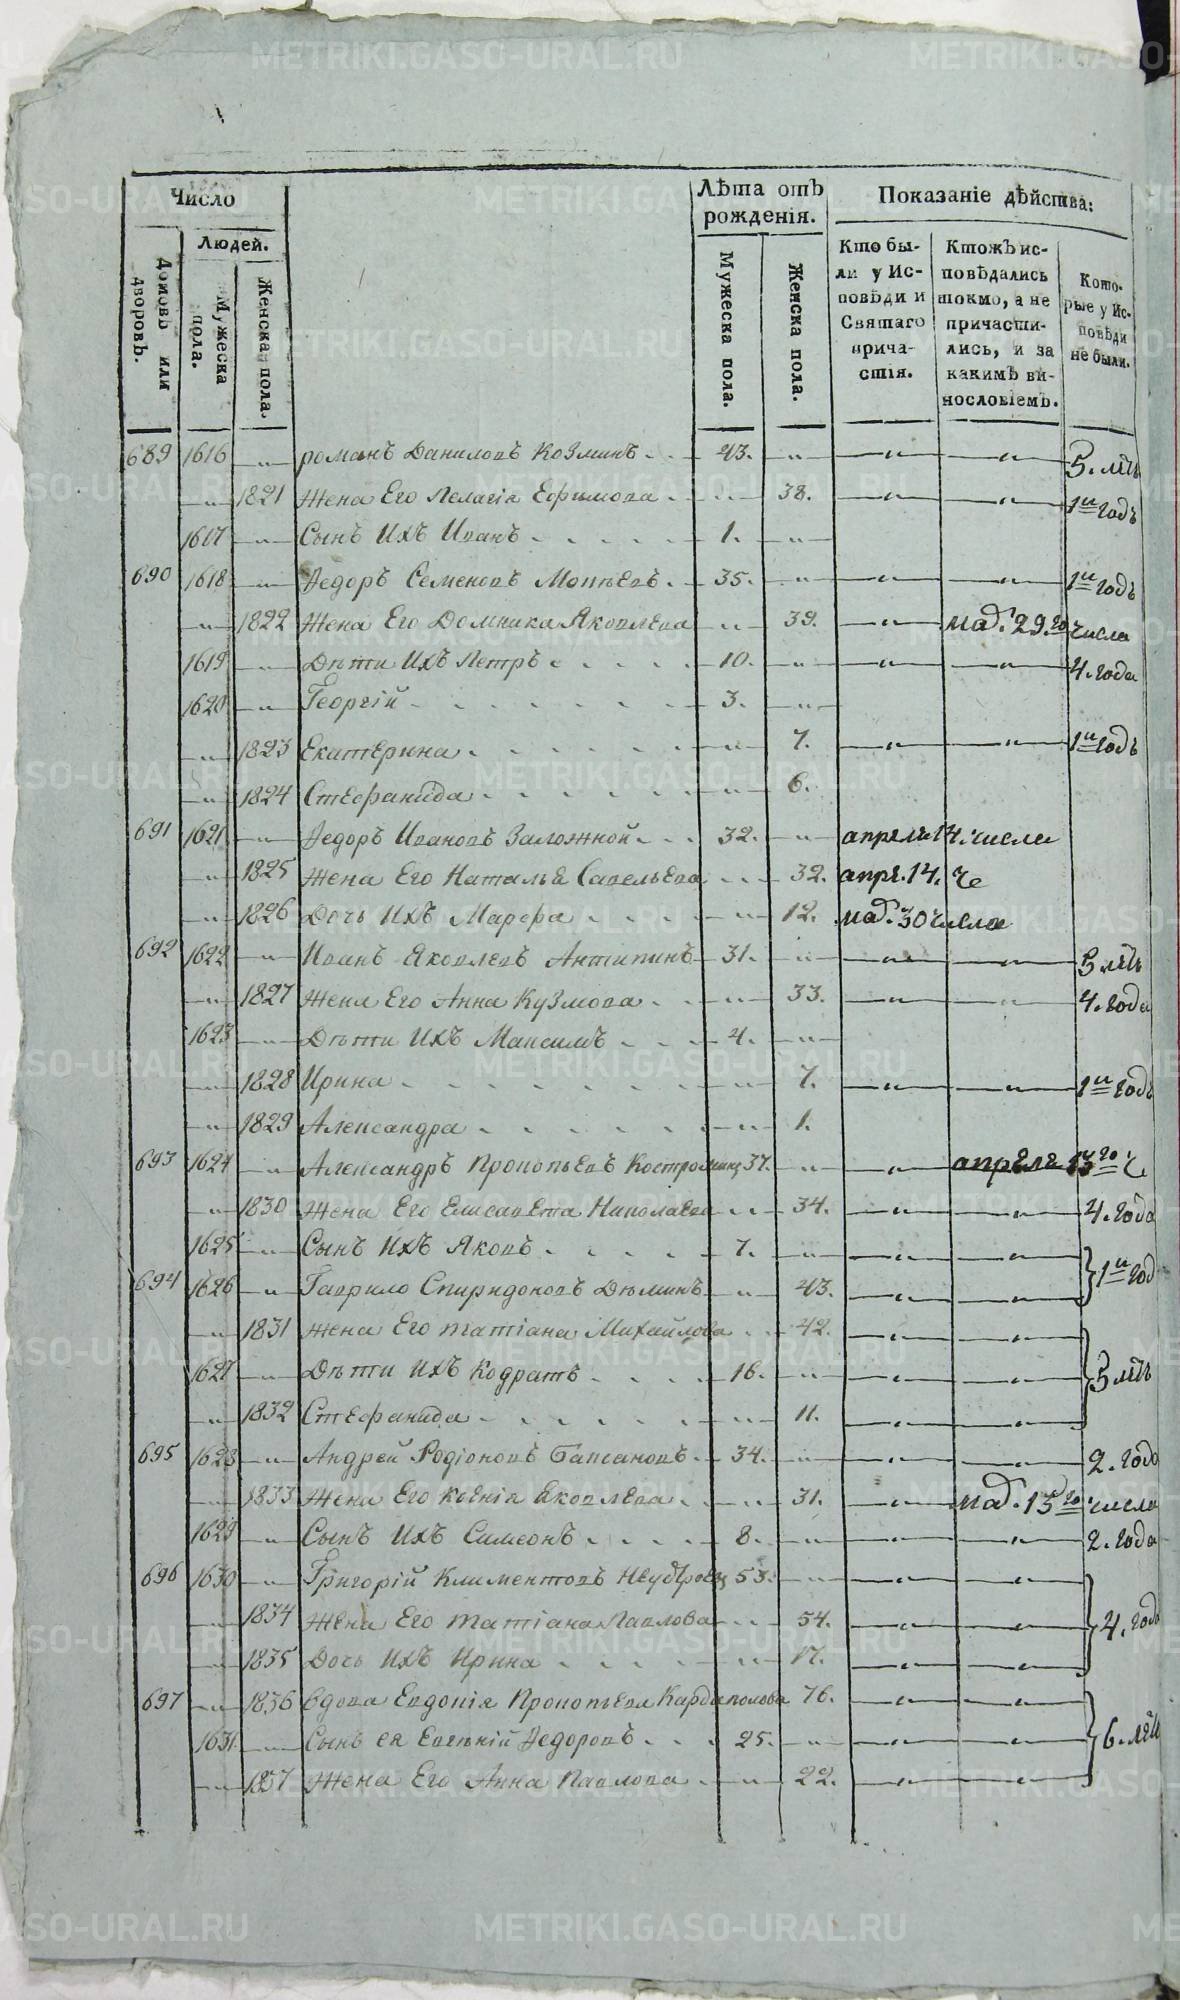 Число
Людей.
Домовъ или дворовъ.
Мужеска пола.
Женска пола.
Лѣта отъ рожденія.
Мужеска пола.
Женска пола.
Показаніе дѣйства:
Кто были у Исповѣди и Святаго причастія.
Ктожъ исповѣдались токмо, а не причастились, и за какимъ винословіемъ.
Которые у Исповѣди не были.
689 1616 „ романъ Даниловъ Козминъ 43. „ „ „ 5. лѣтъ
„ 1821 Жена Его Пелагія Ефимова „ 38. „ „ 1й годъ
1617 „ Сынъ Ихъ Иванъ 1. „
690 1618 „ Федоръ Семеновъ 35. „ „ „ 1й годъ
„ 1822 Жена Его Домника Яковлева „ 39. „ маѧ. 29.го числа
1619 „ Дѣти Ихъ Петръ 10. „ „ „ 4. года
1620 „ Георгій 3. „
„ 1823 Екатерина „ 7. „ „ 1й годъ
„ 1824 Стефанида „ 6.
691 1621 „ Федоръ Ивановъ Заложной 32. „ апрелѧ 14. числа
„ 1825 Жена Его Наталья Савельева „ 32. апре. 14. Че
„ 1826 Дочь Ихъ Марфа „ 12. маѧ. 30 числа
692 1622 „ Иванъ Яковлевъ Антипинъ 31. „ „ „ 5 лѣтъ
„ 1827 Жена Его Анна Кузмова „ 33. „ „ 4. года
1623 „ Дѣти Ихъ Максимъ 4. „
„ 1828 Ирина „ 7. „ „ 1й годъ
„ 1829 Александра „ 1.
693 1624 „ Александръ Прокопьевъ Костроминъ 37. „ „ апрелѧ 13го Ч
„ 1830 Жена Его Елисавета Николаева „ 34. „ „ 4. года
1625 „ Сынъ Ихъ Яковъ 7. „ „ „ 1й год
694 1626 „ Гаврило Спиридоновъ Дюминъ „ 43. „ „
„ 1831 Жена Его татіана Михайлова „ 42. „ „
1627 „ Дѣти Ихъ Кодратъ 16. „ „ „ 5 лѣтъ
„ 1832 Стефанида „ 11. „ „
695 1628 „ Андрей Родіоновъ 34. „ „ „ 2. года
„ 1833 Жена Его Ксенія Яковлева „ 31. „ маѧ. 15го числа
1629 „ Сынъ Ихъ Симеонъ 8. „ „ „ 2. года
696 1630 „ Григорій Климентовъ 53. „ „ „
„ 1834 Жена Его татіана Павлова „ 54. „ „ 4. года
„ 1835 Дочь Ихъ Ирина „ 17. „ „
697 „ 1836 Вдова Евдокія Прокопьева Кардаполова 76. „ „
1631 „ Сынъ ея Евгеній Федоровъ 25. „ „ „ 6. лѣтъ
„ 1837 Жена Его Анна Павлова „ 22. „ „
METRIKI.GASO-URAL.RU